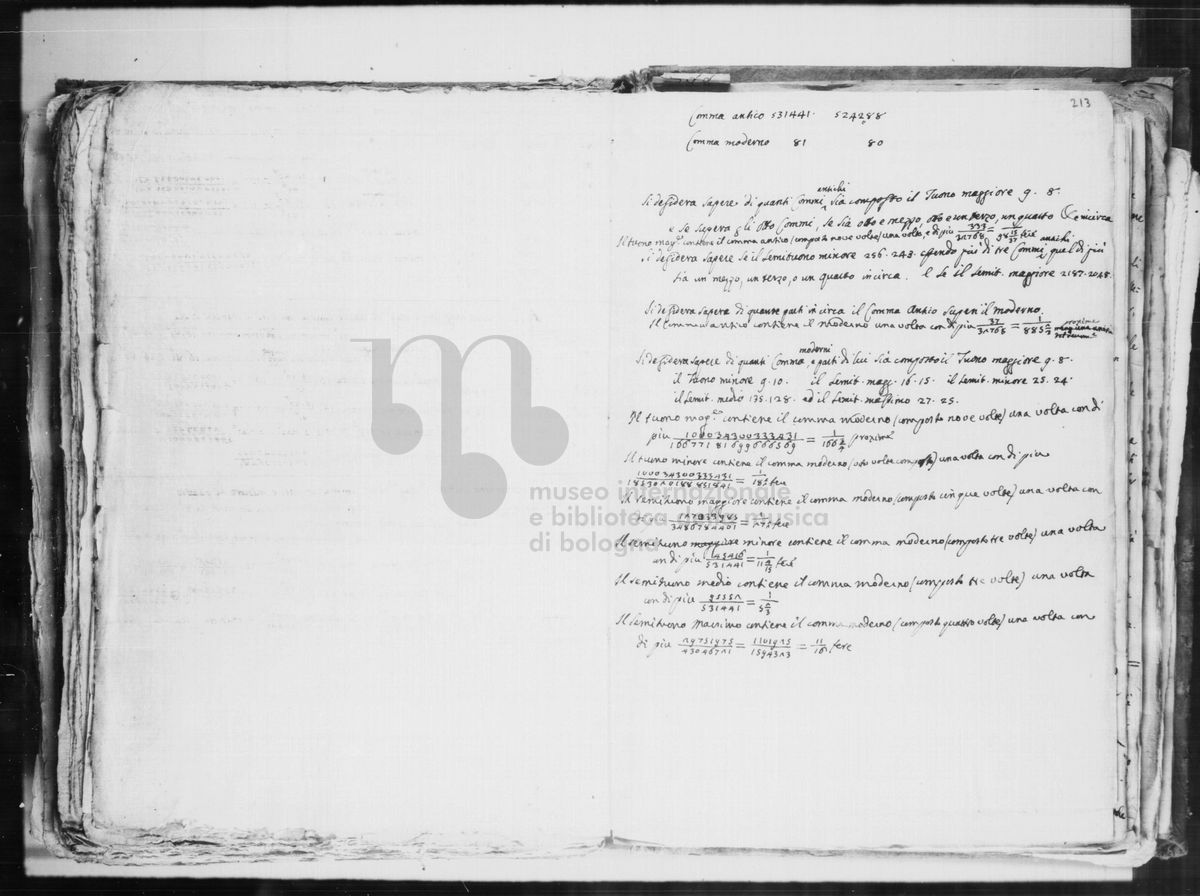 213
Comma antico 531441. 524288
Comma moderno 81 80
Si desidera sapere di quanti Commi antichi sia composto il Tuono maggiore 9. 8.
e se supera gli otto Commi, se sia otto e mezzo, otto e un terzo, un quarto &c incirca
Il tuono magg.e contiene il comma antico (composto nove volte) una volta, e di più
Si desidera sapere se il semituono minore 256. 243. essendo più di tre Commi antichi quel di più
sia un mezzo, un terzo, o un quarto in circa. e se il Semit. maggiore 2187. 2048.
Si desidera sapere di quante parti in circa il Comma Antico superi il moderno.
Il Comma antico contiene il moderno una volta con di più 37/32768 = 1/885 proxime
Si desidera sapere di quanti Comma moderni, e parti di lui sia composto il Tuono maggiore 9. 8.
il Tuono minore 9. 10. il Semit. magg. 16. 15. il Semit. minore 25. 24.
il Semit. medio 135. 128. ed il Semit. massimo 27. 25.
Il tuono mag.e contiene il comma moderno (composto nove volte) una volta con di
più = proxime
Il tuono minore contiene il comma moderno (otto volte composto) una volta con di più
= fere
Il semituono maggiore contiene il comma moderno (composto cinque volte) una volta con
di più /3486784401 = fere
Il semituono maggiore minore contiene il comma moderno (composto tre volte) una volta
con di più /531441 = fere
Il semituono medio contiene il comma moderno (composto tre volte) una volta
con di più /531441 =
Il semituono Massimo contiene il comma moderno (composto quattro volte) una volta con
di più /43046721 = /1594323 = fere
museo internazionale
e biblioteca della musica
di bologna